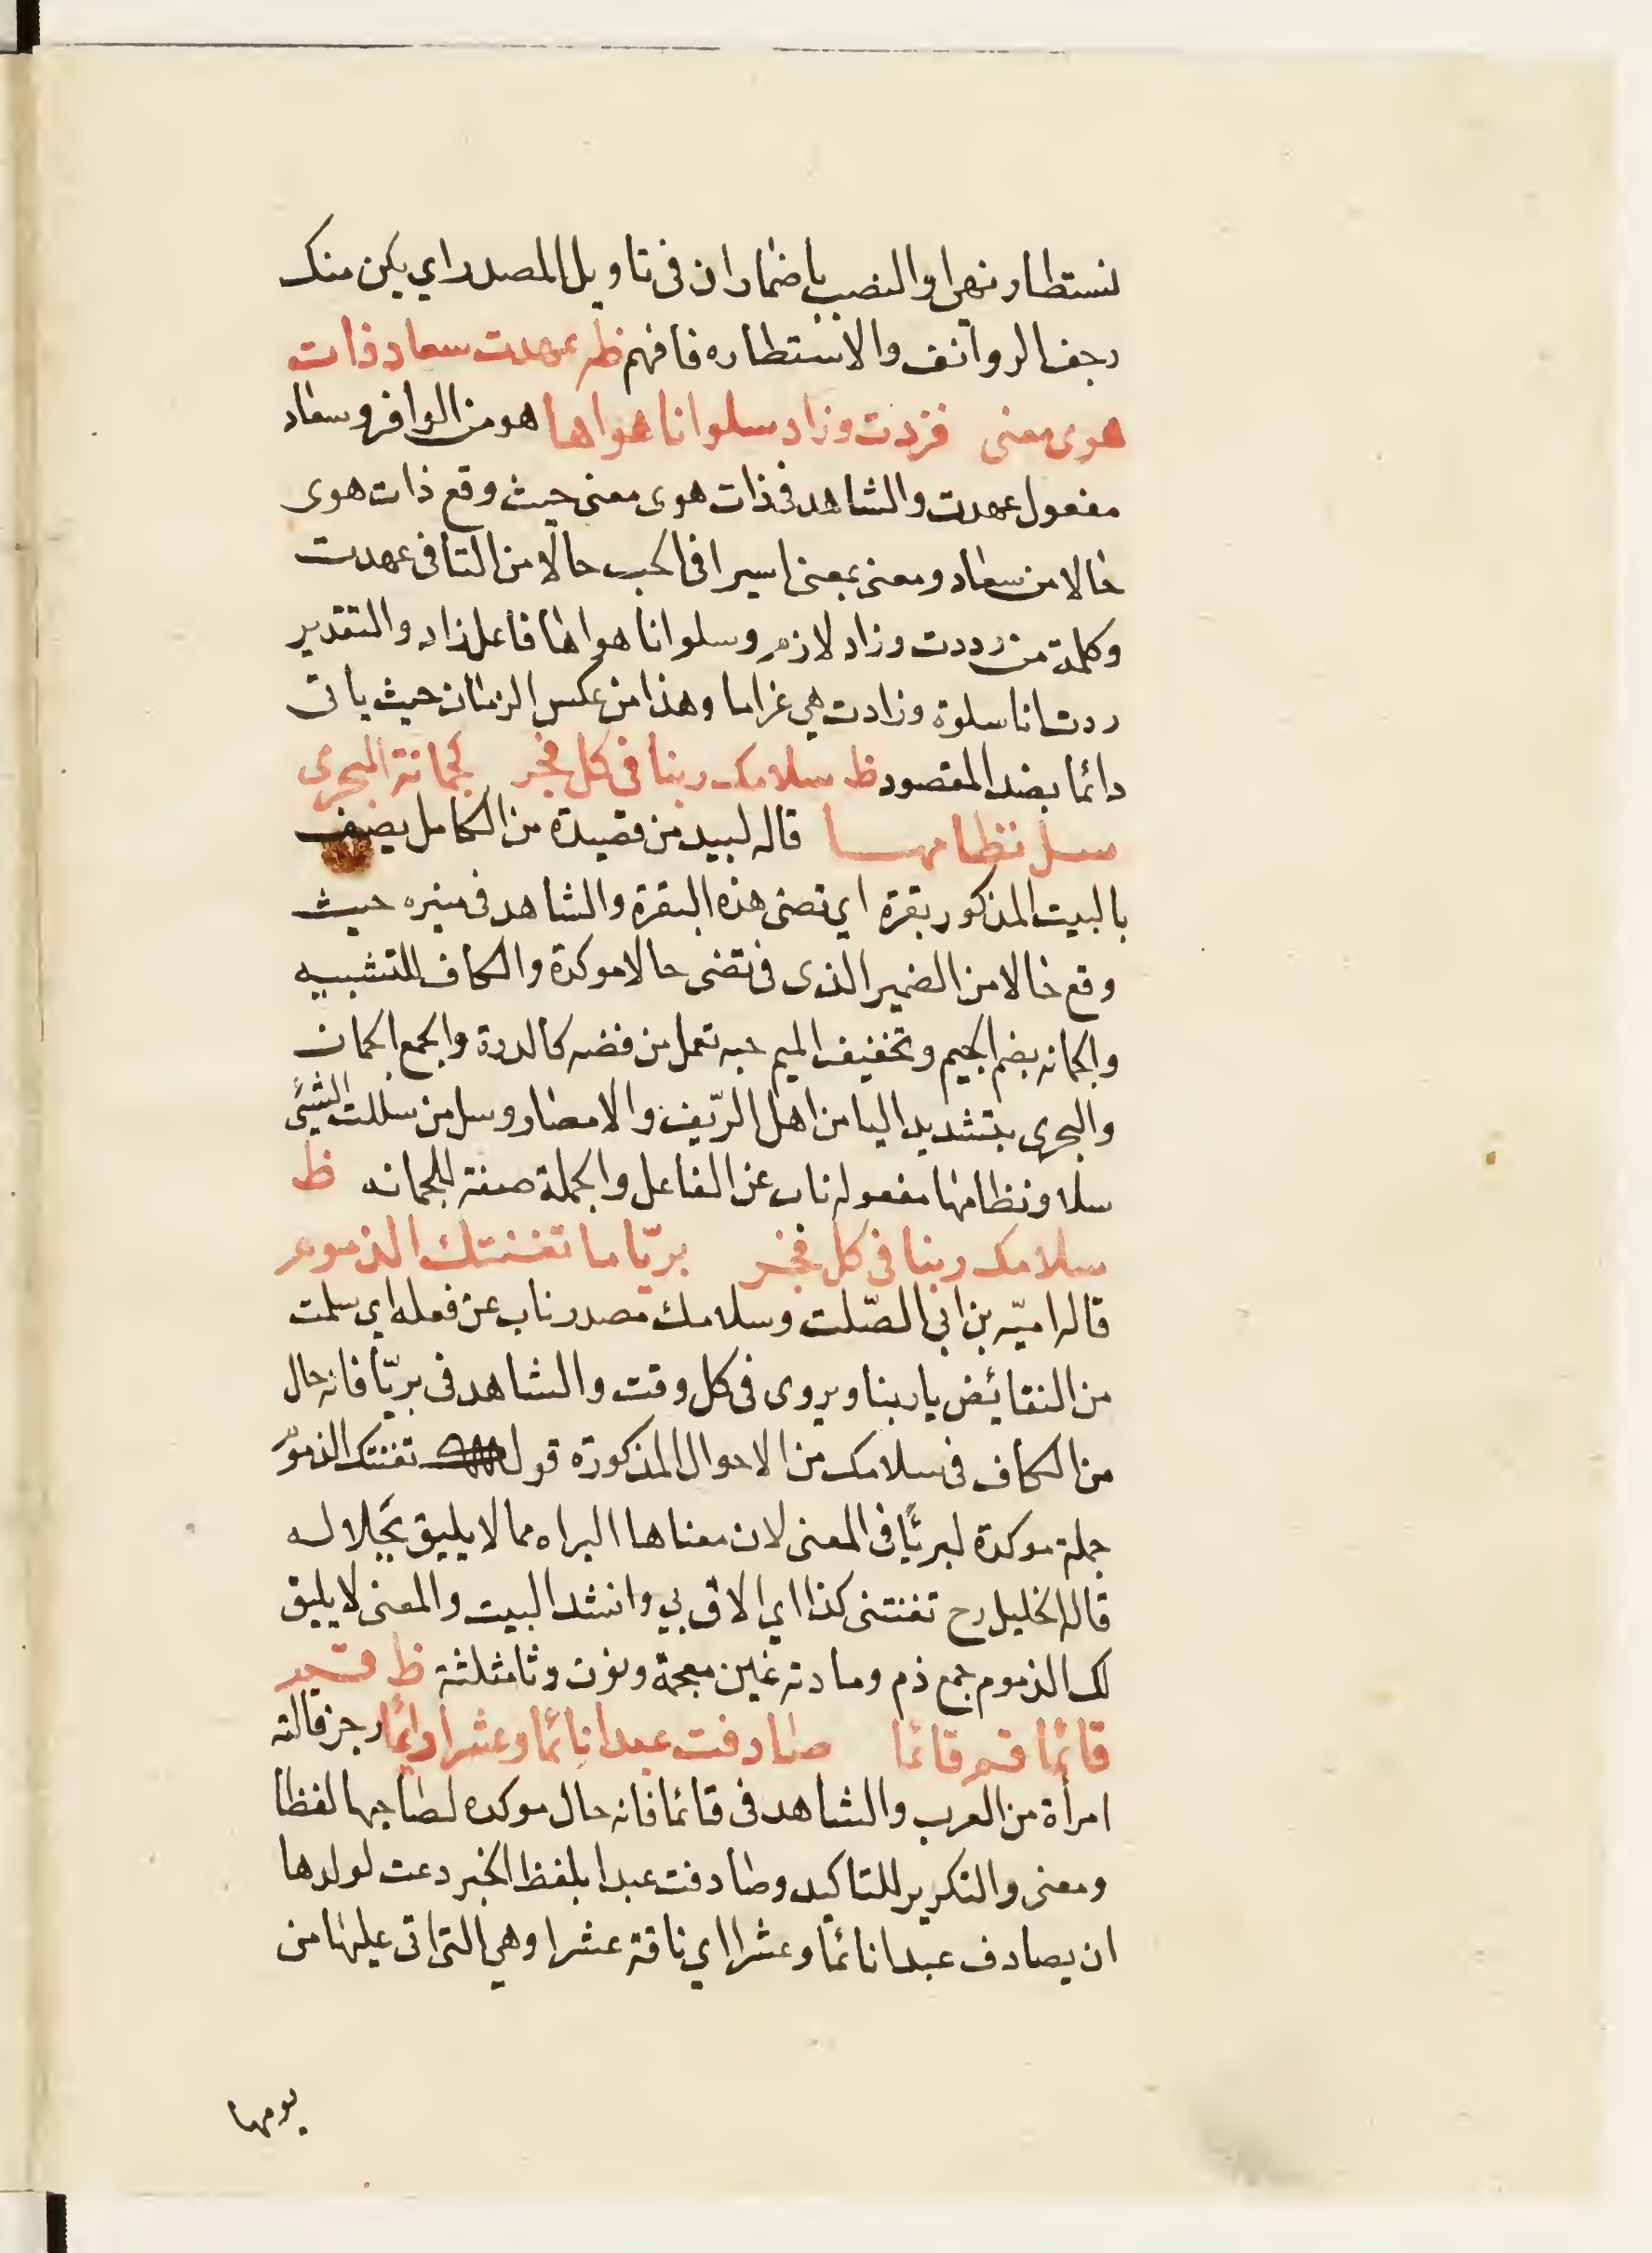 نستطار نهى او النصب باضمار ان فى تاويل المصدر اي يكن منك
رجف الروانف والاستطاره فافهم ظه عهدت سعاد ذات
هوى معنى فزدت وزاد سلوانا هواها هو من الوافر وسعاد
مفعول عهدت والشاهد فى ذات هوى معنى حيث وقع ذات هوى
حالا من سعاد ومعنى بمعنى اسيرا فى الحب حالا من التا فى عهدت
وكلمة من زددت وزاد لازم وسلوانا هواها فاعل زاد والتقدير
زدت انا سلوة وزادت هي غراما وهذا من عكس الزمان حيث ياتى
دائما بضد المقصود ظ سلامك ربنا فى كل فجر كجمانة البحرى
سل نظامها قاله لبيد من قصيدة من الكامل يصف
بالبيت المذكور بقرة اي تضى هذه البقرة والشاهد فى منيره حيث
وقع حالا من الضمير الذى فى تضى حالا موكدة والكاف للتشبيه
والجمانه بضم الجيم وتخفيف الميم حبه تعمل من فضه كالدرة والجمع الجمان
والبحرى بتشديد اليا من اهل الريف والامصار وسل من سللت الشيئ
سلا ونظامها مفعوله ناب عن الفاعل والجملة صفة للجمانه ظ
سلامك ربنا فى كل فجر بريّا ما تغنتك الذموم
قاله اميّه بن ابي الصّلت وسلامك مصدر ناب عن فعله اي سلمت
من النقائض ياربنا ويروى فى كل وقت والشاهد فى بريّا فانه حال
من الكاف فى سلامك من الاحوال المذكورة قوله تغنتك الذموم
جملة موكدة لبريًا فى المعنى لان معناها البراه مما لا يليق بجلاله
قاله الخليل رح تغنتنى كذا اي الاق بي وانشد البيت والمعنى لا يليق
لك الذموم جمع ذم ومادته غين معجمة ونون وثا مثلثة ظ قم
قائما قم قائما صادفت عبدا نائما وعشرا دائما رجز قالته
امرأة من العرب والشاهد فى قائما فانه حال موكده لصاحبها لفظا
ومعنى والتكرير للتاكيد وصادفت عبدا بلفظ الخبر دعت لولدها
ان يصادف عبدا نائما وعشرا اي ناقة عشرا وهي التى اتى عليها من
يومها